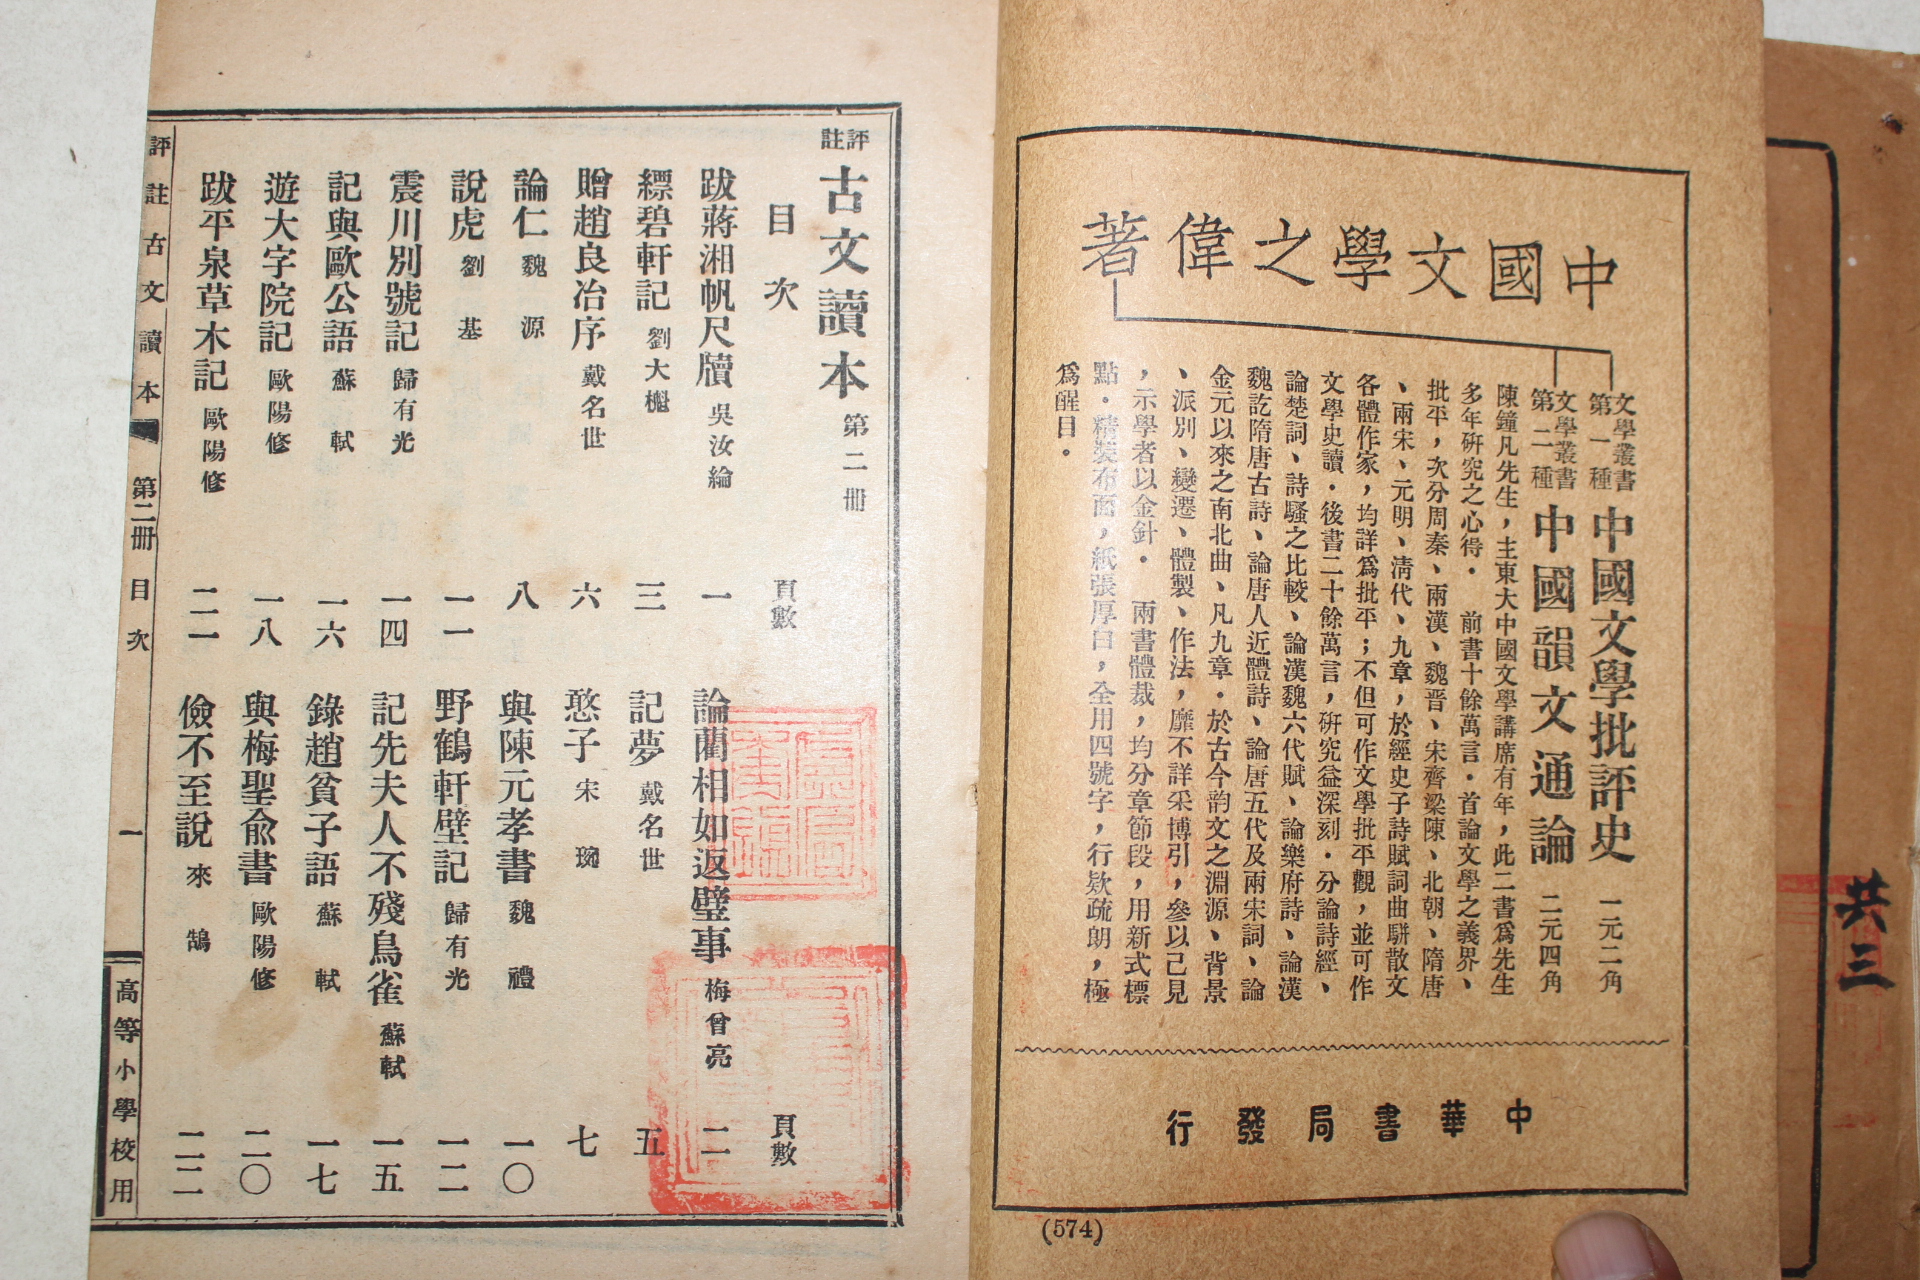 共三
中國文學之偉著
文學叢書第一種 中國文學批評史 一元二角
文學叢書第二種 中國韻文通論 二元四角
陳鐘凡先生，主東大中國文學講席有年，此二書爲先生
多年研究之心得． 前書十餘萬言．首論文學之義界、
批平，次分周秦、兩漢、魏晋、宋齊梁陳、北朝、隋唐
、兩宋、元明、清代、九章，於經史子詩賦詞曲駢散文
各體作家，均詳爲批平；不但可作文學批平觀，並可作
文學史讀．後書二十餘萬言，研究益深刻．分論詩經、
論楚詞、詩騷之比較、論漢魏六代賦、論樂府詩、論漢
魏訖隋唐古詩、論唐人近體詩、論唐五代及兩宋詞、論
金元以來之南北曲、凡九章．於古今韵文之淵源、背景
、派別、變遷、體製、作法，靡不詳采博引，參以己見
，示學者以金針． 兩書體裁，均分章節段，用新式標
點．精裝布面，紙張厚白，全用四號字，行欵疏朗，極
爲醒目．
中華書局發行
(574)
評註古文讀本 第二冊
目次 頁數 頁數
跋蔣湘帆尺牘 吳汝綸 一 論藺相如返璧事 梅曾亮 二
縹碧軒記 劉大櫆 三 記夢 戴名世 五
贈趙良冶序 戴名世 六 憨子 宋琬 七
論仁 魏源 八 與陳元孝書 魏禮 一〇
說虎 劉基 一一 野鶴軒壁記 歸有光 一二
震川別號記 歸有光 一四 記先夫人不殘鳥雀 蘇軾 一五
記與歐公語 蘇軾 一六 錄趙貧子語 蘇軾 一七
遊大字院記 歐陽修 一八 與梅聖兪書 歐陽修 二〇
跋平泉草木記 歐陽修 二一 儉不至說 來鵠 二二
評註古文讀本 第二冊 目次 一 高等小學校用